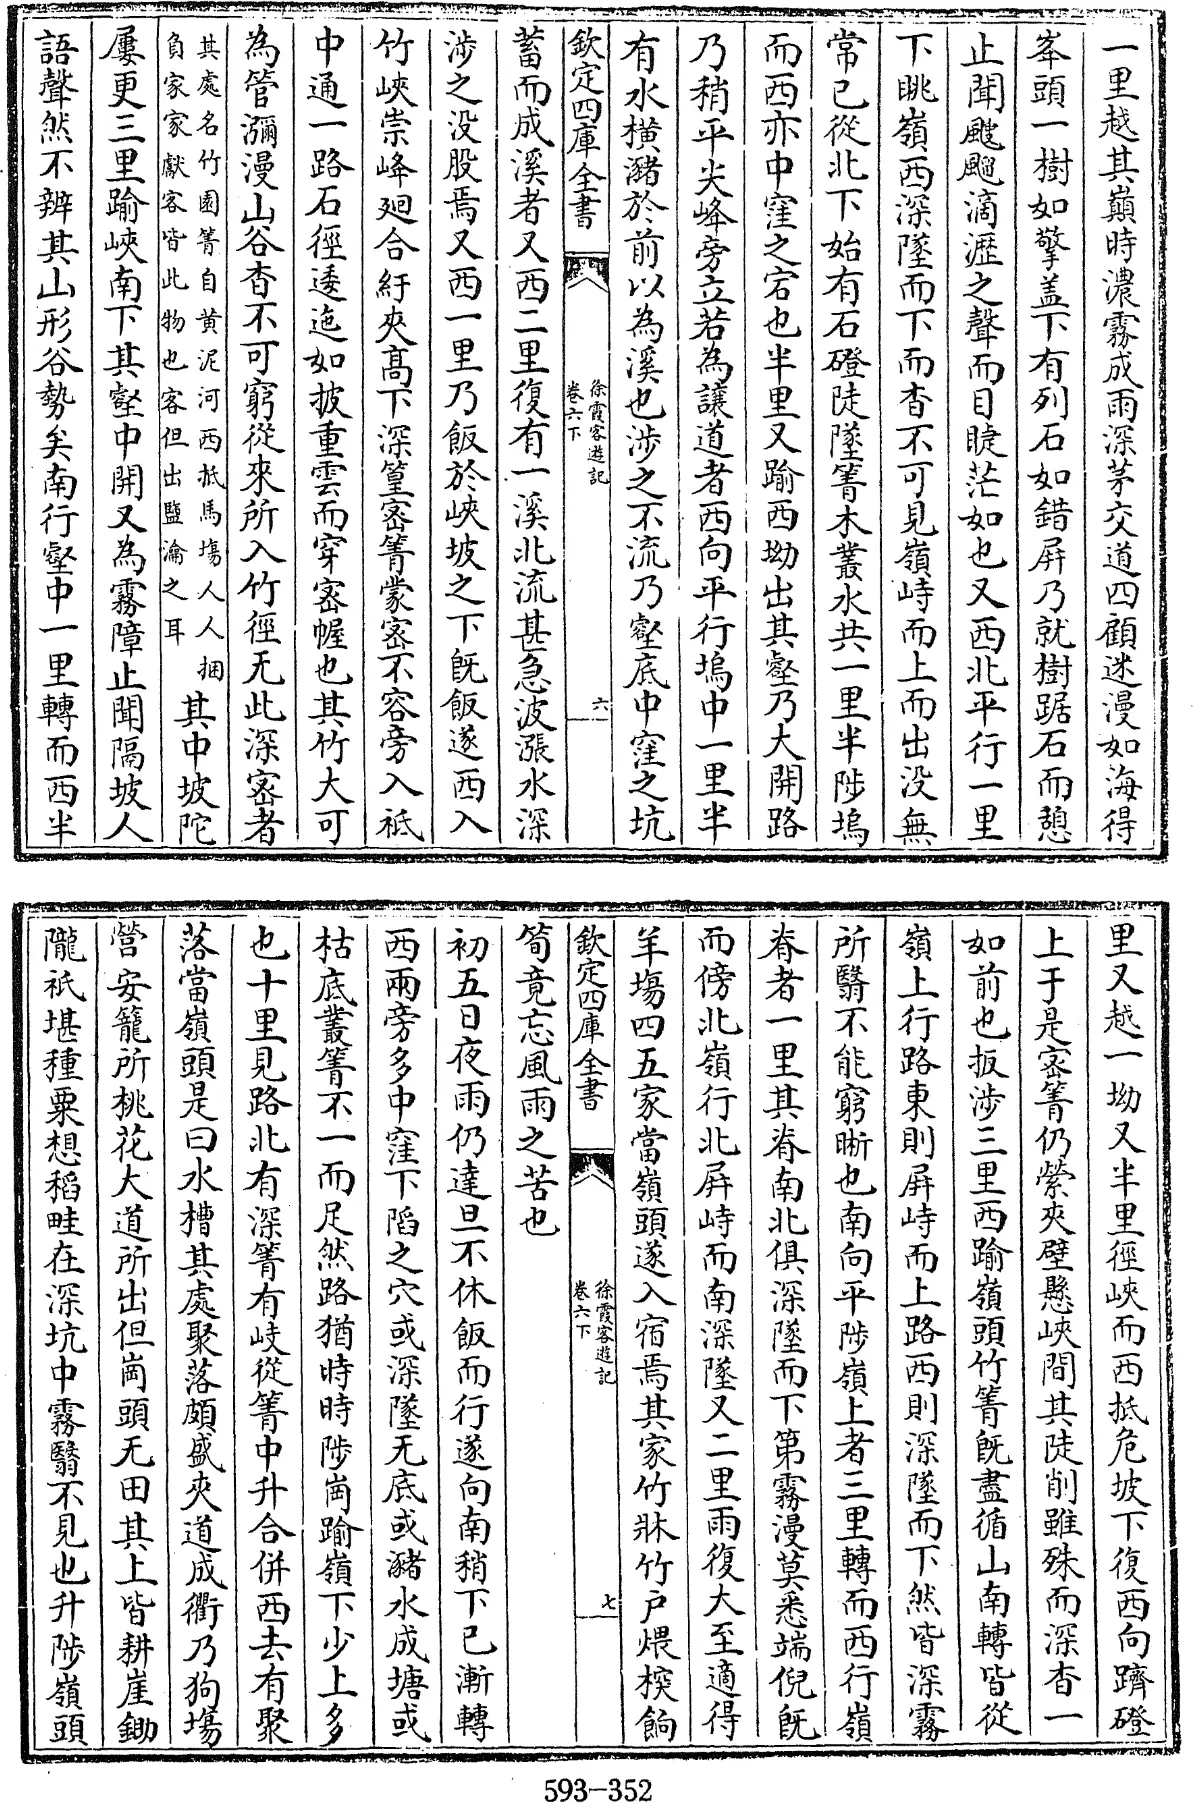 一里越其巔時濃霧成雨深茅交道四顧迷漫如海得
峯頭一樹如擎盖下有列石如錯屛乃就樹踞石而憩
止聞颼飀滴瀝之聲而目睫茫如也又西北平行一里
下眺嶺西深墜而下而杳不可見嶺峙而上而出没無
常已從北下始有石磴陡墜箐木叢水共一里半陟塢
而西亦中窪之宕也半里又踰西坳出其壑乃大開路
乃稍平尖峰旁立若為讓道者西向平行塢中一里半
有水橫瀦於前以為溪也涉之不流乃壑底中窪之坑
欽定四庫全書
徐霞客遊記
卷六下
六
蓄而成溪者又西二里復有一溪北流甚急波漲水深
涉之没股焉又西一里乃飯於峽坡之下旣飯遂西入
竹峽崇峰廻合紆夾髙下深篁宻箐䝉宻不容旁入祗
中通一路石徑逶迤如披重雲而穿宻幄也其竹大可
為管瀰漫山谷杳不可窮從來所入竹徑无此深宻者
其處名竹園箐自黄泥河西抵馬塲人人捆
負家家獻客皆此物也客但出鹽瀹之耳
其中坡陀
屢更三里踰峽南下其壑中開又為霧障止聞隔坡人
語聲然不辨其山形谷勢矣南行壑中一里轉而西半
里又越一坳又半里徑峽而西抵危坡下復西向躋磴
上于是宻箐仍縈夾壁懸峽間其陡削雖殊而深杳一
如前也扳涉三里西踰嶺頭竹箐旣盡循山南轉皆從
嶺上行路東則屛峙而上路西則深墜而下然皆深霧
所翳不能窮晰也南向平陟嶺上者三里轉而西行嶺
脊者一里其脊南北俱深墜而下第霧漫莫悉端倪旣
而傍北嶺行北屛峙而南深墜又二里雨復大至適得
羊塲四五家當嶺頭遂入宿焉其家竹牀竹户煨榾餉
欽定四庫全書
徐霞客遊記
卷六下
七
筍竟忘風雨之苦也
初五日夜雨仍達旦不休飯而行遂向南稍下已漸轉
西兩旁多中窪下陷之穴或深墜无底或瀦水成塘或
枯底叢箐不一而足然路猶時時陟崗踰嶺下少上多
也十里見路北有深箐有岐從箐中升合併西去有聚
落當嶺頭是曰水槽其處聚落頗盛夾道成衢乃狗塲
營安籠所桃花大道所出但崗頭无田其上皆耕崖鋤
隴祗堪種粟想稻畦在深坑中霧翳不見也升陟嶺頭
593-352